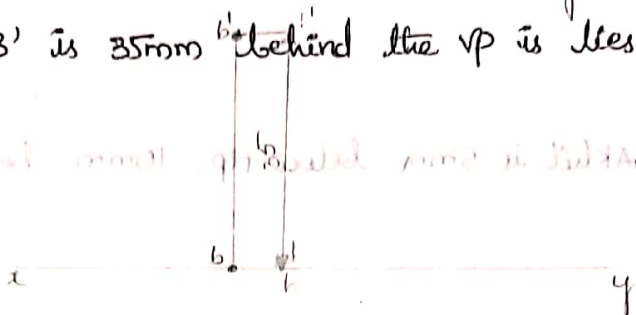 3' is 35mm behind the vp is lies
b'
35
b
x y